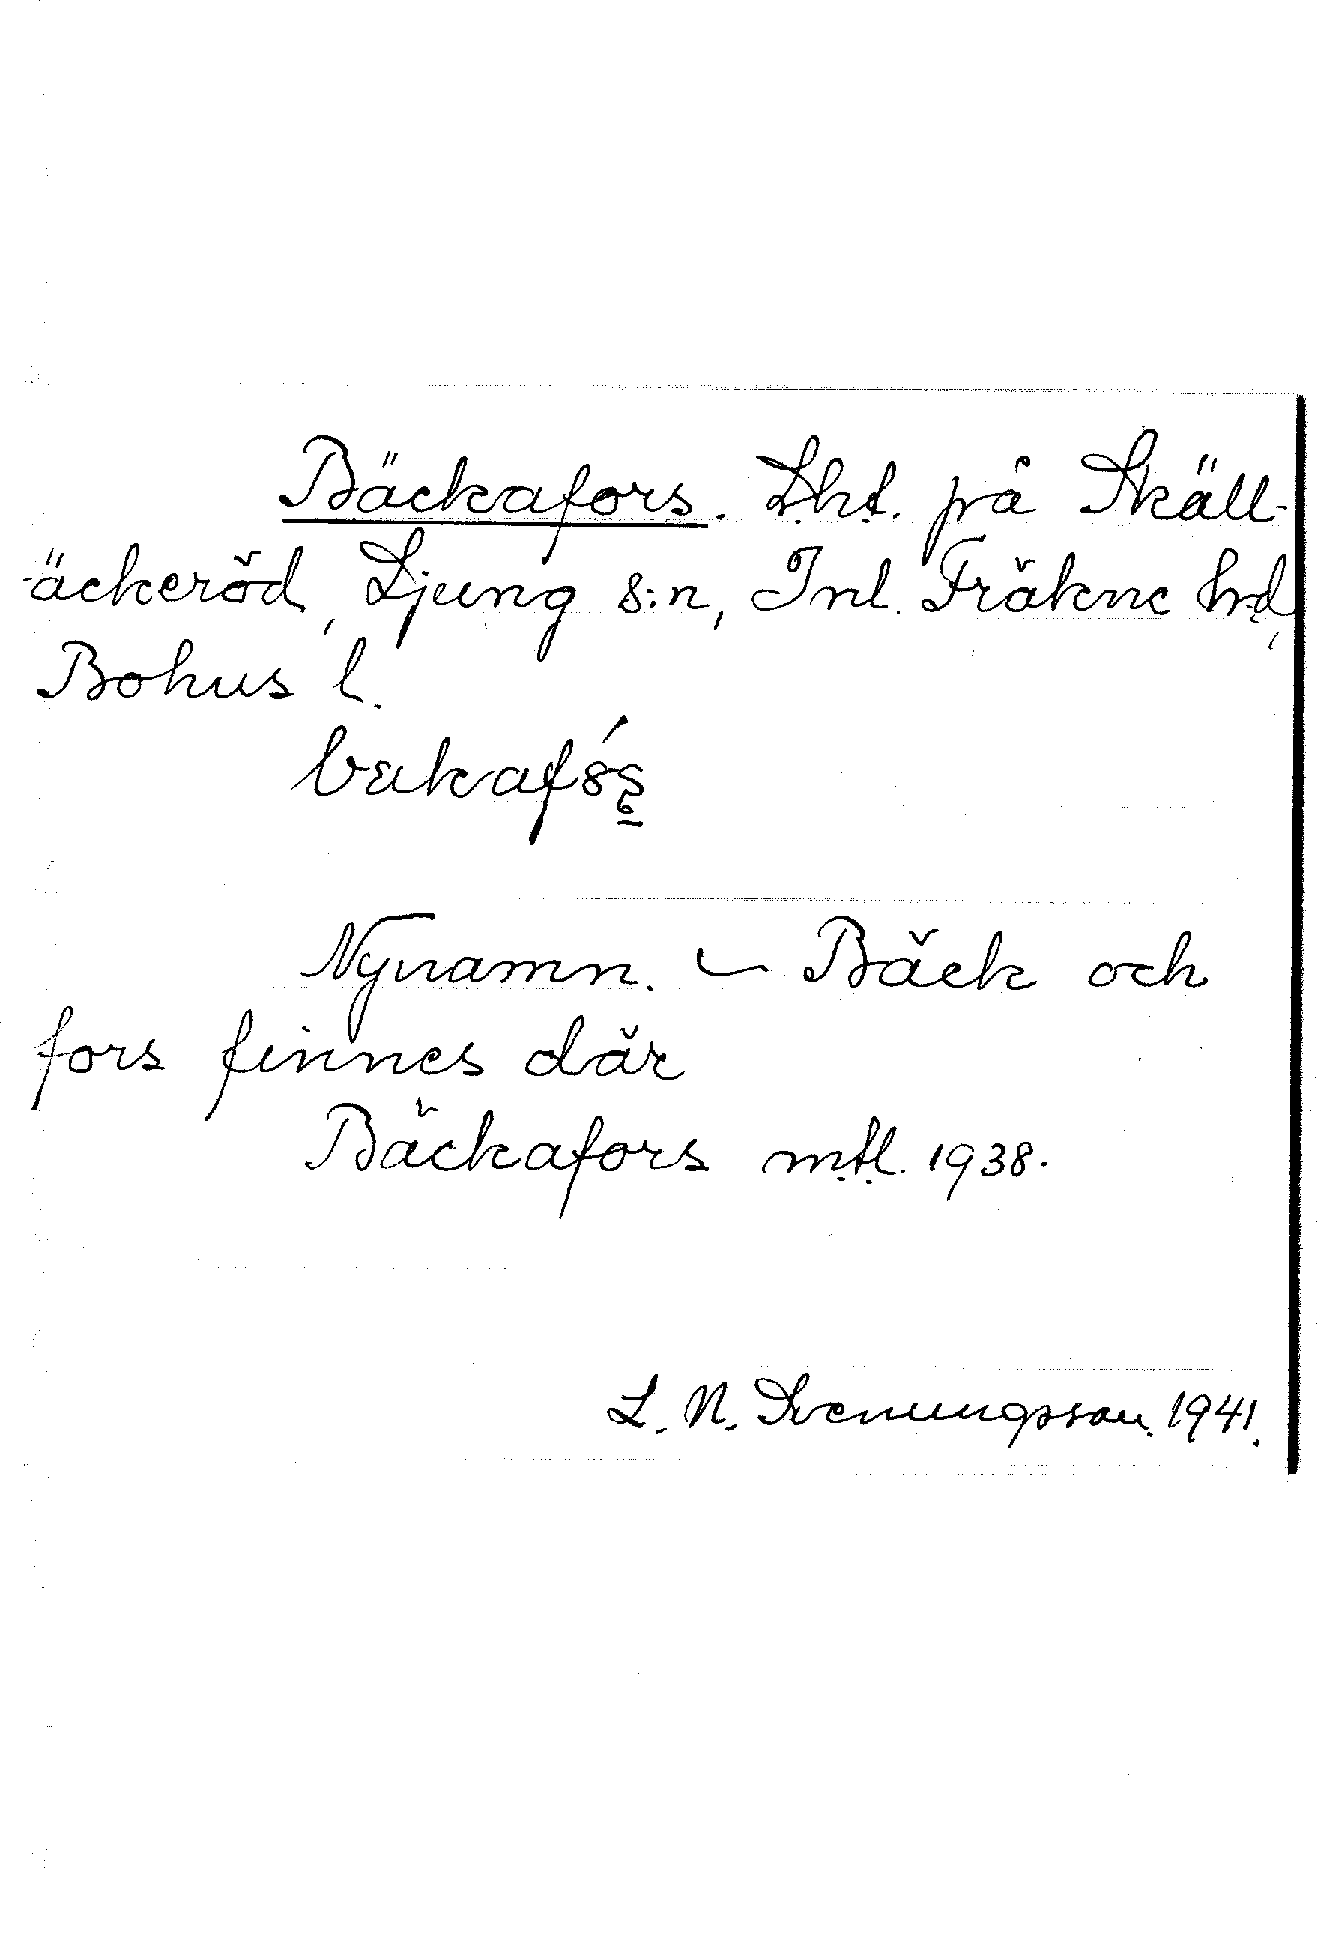 Bäckafors. Lht. på Skäll-
äckeröd, Ljung s:n, Inl. Fräkne hd,
Bohus l.
Nynamn. – Bäck och
fors finnes där
Bäckafors mtl. 1938.
L. N. Svenungsson. 1941.